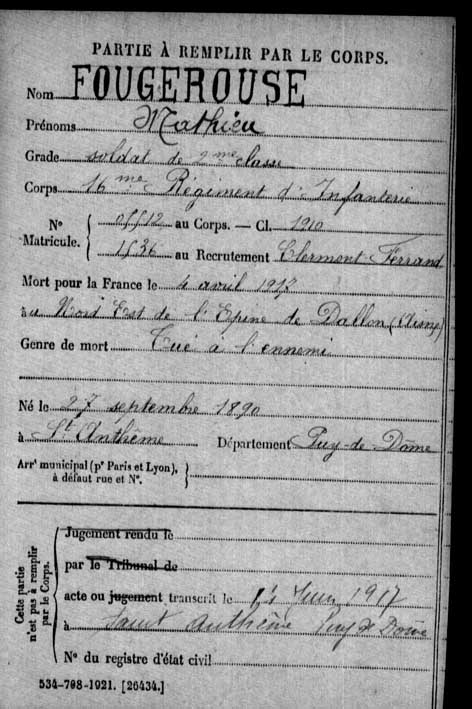 PARTIE À REMPLIR PAR LE CORPS.
Nom FOUGEROUSE
Prénoms Mathieu
Grade soldat de 2me classe
Corps 16me Régiment d'Infanterie
Nº Matricule. { 05512 au Corps. — Cl. 1910
1536 au Recrutement Clermont-Ferrand
Mort pour la France le 4 avril 1917
au Nord Est de l'Epine de Dallon (Aisne)
Genre de mort Tué à l'ennemi
Né le 27 septembre 1890
à St Anthème Département Puy-de Dôme
Arrt municipal (pr Paris et Lyon),
à défaut rue et Nº. }
Cette partie n'est pas à remplir par le Corps.
Jugement rendu le
par le Tribunal de
acte ou jugement transcrit le Juin 1917
à Saint Anthème Puy de Dôme
Nº du registre d'état civil
534-708-1921. [26434.]